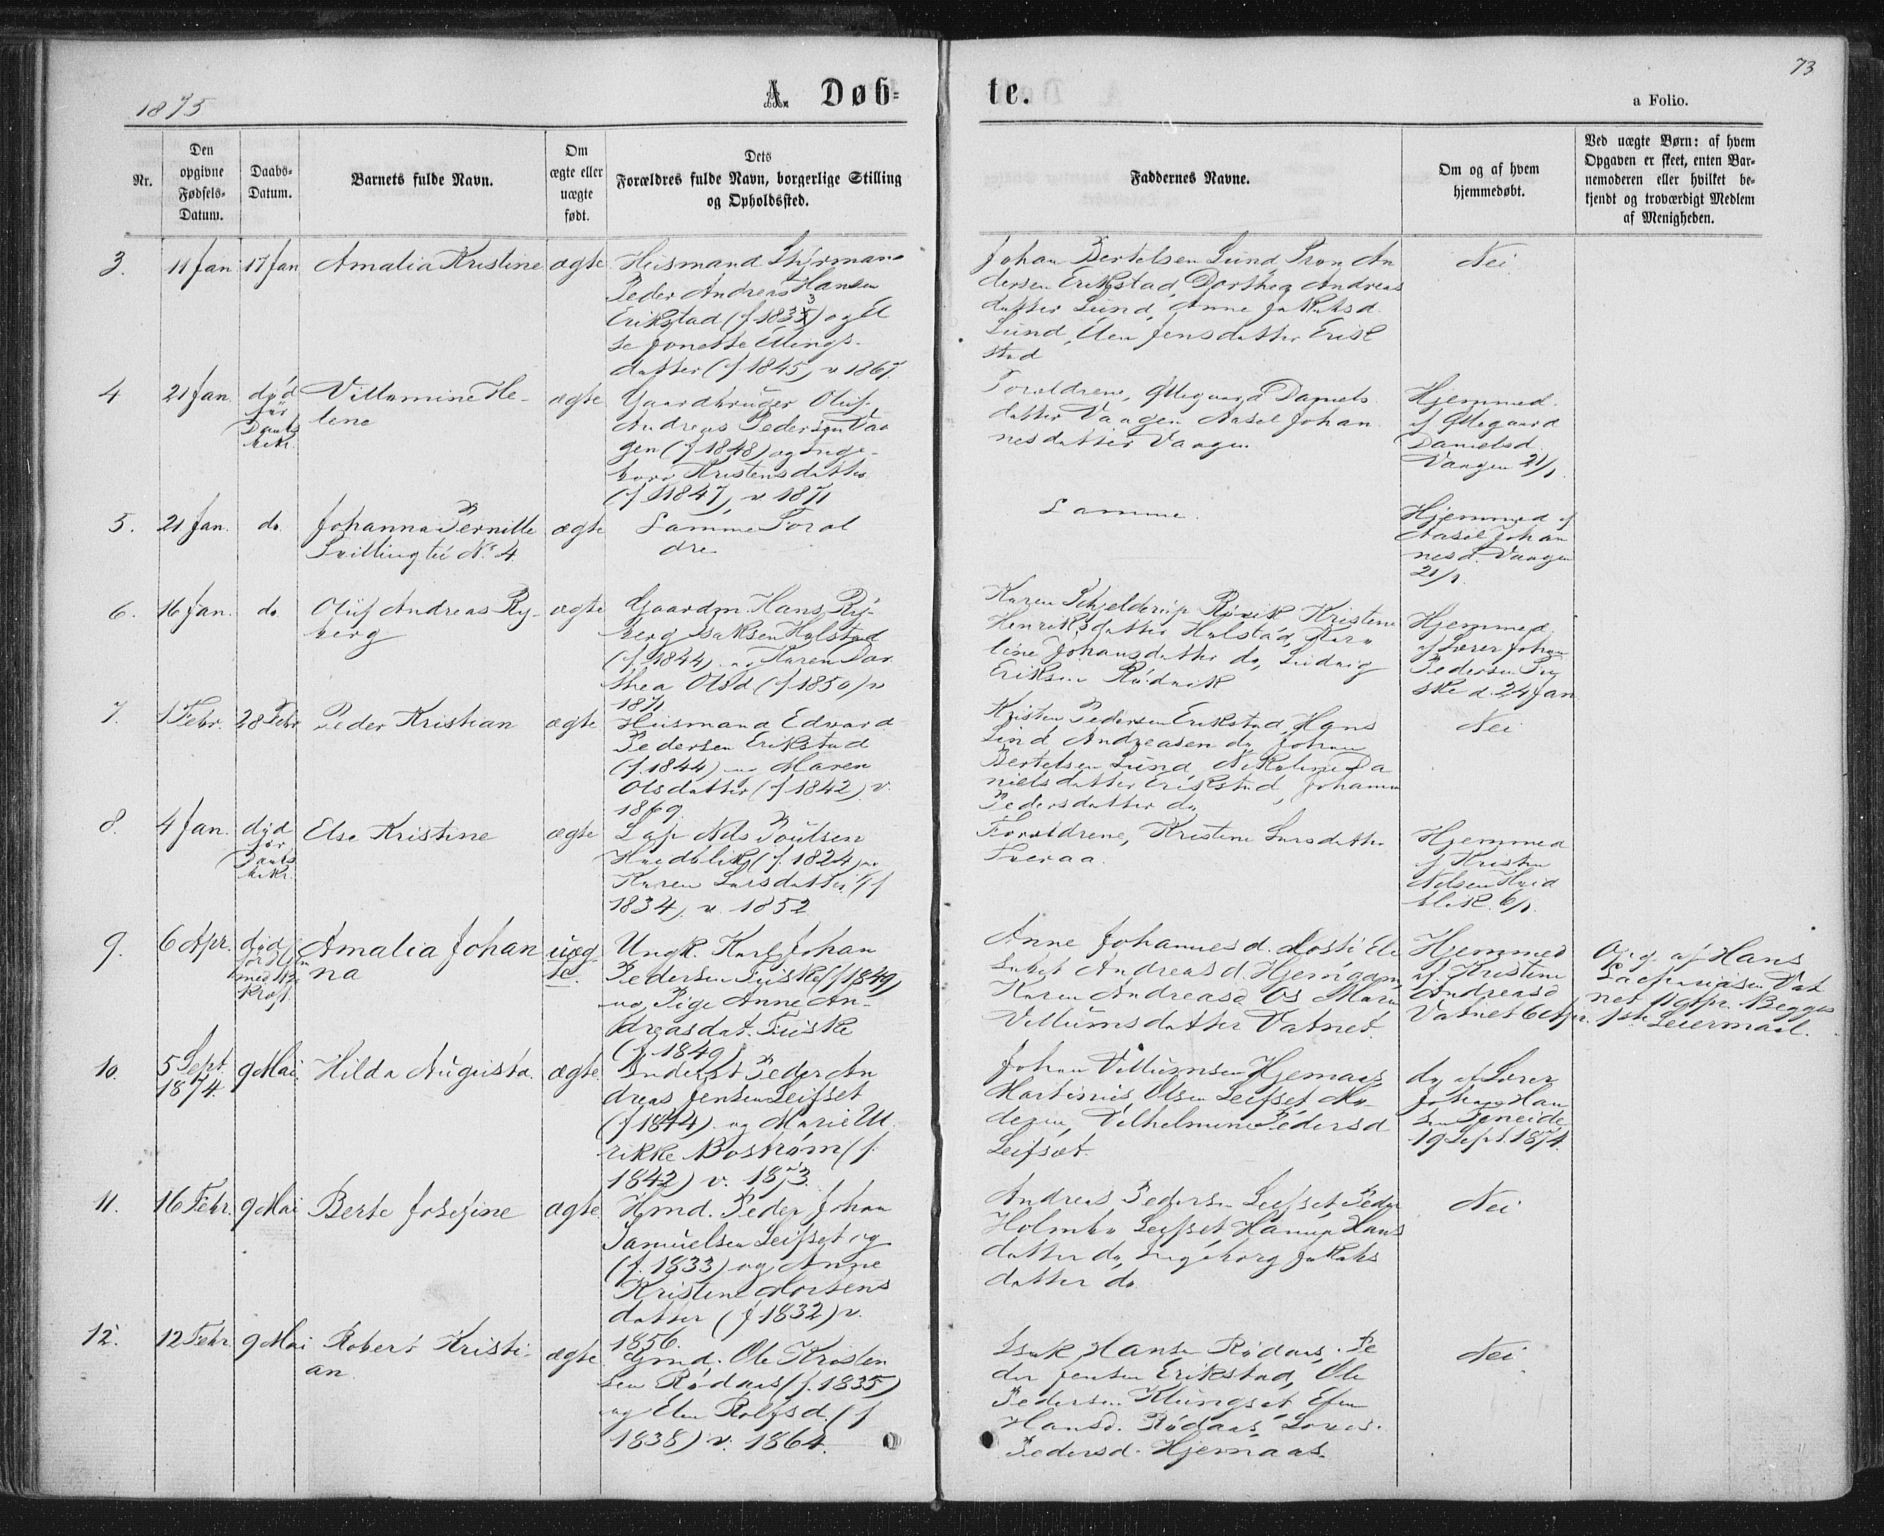 73
1875
A. Døb-
te.
a Folio.
Nr.
Den
opgivne
Fødsels-
Datum.
Daabs-
Datum.
Barnets fulde Navn.
Om
ægte eller
uægte
født.
Dets
Forældres fulde Navn, borgerlige Stilling
og Opholdssted.
Faddernes Navne.
Om og af hvem
hjemmedøbt.
Ved uægte Børn: af hvem
Opgaven er skeet, enten Bar-
nemoderen eller hvilket be-
kjendt og troværdigt Medlem
af Menigheden.
3.
11 Jan
17 Jan
Amalia Kristine
ægte
Husmand Styrmand
Peder Andreas Hansen
Erikstad (f 1833) og El
se Jonette Ellings-
datter (f 1845) v 1867.
Johan Bertelsen Lund, An
dersen Erikstad, Dorthea Andreas
datter Lund, Anne Jakobsd
Lund, Elen Jensdatter Erik
stad
Nei
4
21 Jan.
død
før
Daabs
bekr.
Villumine He-
lene
ægte
Gaardbruger Oluf
Andreas Pedersen Vaa
gen (f 1848) og Inge-
borg Kristensdatter
(f 1847) v 1871
Forældrene, Ødegaard Daniels
datter Vaagen Aasel Johan
nesdatter Vaagen
Hjemmed.
af Ødegaard
Danielsd
Vaagen 21/1
5.
21 Jan.
do
Johanna Pernille
Tvilling til N. 4
ægte
Samme Foræl
dre
Samme.
Hjemmed af
Aasel Johan
nesd. Vaagen
21/1.
6.
16 Jan.
do
Oluf Andreas Ry-
berg
ægte
Gaardm. Hans Ry-
berg Isaksen Halstad
(f. 1844) og Karen Dor
thea Olsd (f 1850) v
1871
Karen Schjelderup Rørvik Kristine
Henriksdatter Halstad, Karo
line Johansdatter do, Ludvig
Eriksen Rødvik
Hjemmed
af Lærer Johan
Pedersen Fu
ske d. 24 Jan
7.
1 Febr.
28 Febr
Peder Kristian
ægte
Husmand Edvard
Pedersen Erikstad
(f. 1844) og Maren
Olsdatter (f 1842) v.
1869.
Kristen Pedersen Erikstad, Hans
Lind Andreasen do Johan
Bertelsen Lund, Nikoline Da
nielsdatter Erikstad, Johanna
Pedersdatter do
Nei
8.
4 Jan.
død
før
Daabs
bekr.
Else Kristine
ægte
Lap Nils Poulsen
Hvidblik (f. 1824) og
Karen Larsdatter (f
1834) v. 1852
Forældrene, Kristine Larsdatter
Tveraa.
Hjemmed
af Kristen
Nilsen Hvid
blik. 6/1.
9.
6 Apr.
død
før Hjem
med. be
kræft.
Amalia Johan
na
uæg-
te.
Ungk. Karl Johan
Pedersen Fuske (f 1849)
og Pige Anne An-
dreasdat. Fuske
(f. 1849)
Anne Johannesd. Mosti Ele
Andreasd. Hjemgam
Karen Andreasd Os Maren
Villumsdatter Vatnet.
Hjemmed
af Kristine
Andreasd
Vatnet 6 Apr.
Opg. af Hans
Zachariasen Vat
net 11 Apr. Begges
1ste Leiermaal.
10.
5 Sept.
1874.
9 Mai.
Hilda Augusta.
ægte.
Inderst Peder An
dreas Jensen Leifset
(f 1844) og Marie Ul
rikke Bostrøm (f.
1842) v. 1873.
Johan Villumsen Hjemaas,
Martinus Olsen Leifset Mo-
deren, Vilhelmine Pedersd
Leifset.
do af Lærer
Johan Han
sen Fineide
19 Sept. 1874.
11.
16 Febr.
9 Mai
Berte Josefine
ægte
Hmd. Peder Johan
Samuelsen Leifset og
(f. 1833) og Anne
Kristine Mortens
datter (f 1832) v.
1856.
Andreas Pedersen Leifset, Peder
Holmbo Leifset, Hanna Hans
datter do, Ingeborg Jakobs
datter do
Nei
12.
12 Febr
9 Mai
Robert Kristi-
an
ægte
Gmd. Ole Kristen
sen Rødaas (f. 1835)
og Elen Rolfsd. (f
1838) v. 1864.
Isak Hansen Rødaas, Pe
der Jensen Erikstad, Ole
Pedersen Klungset
Hansd. Rødaas
Pedersd. Hjemaas
Nei.